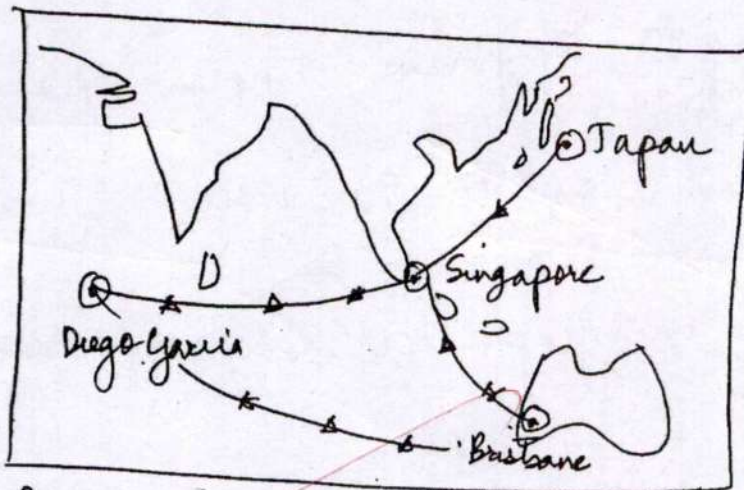 Japan
Singapore
Diego Garcia
Brisbane